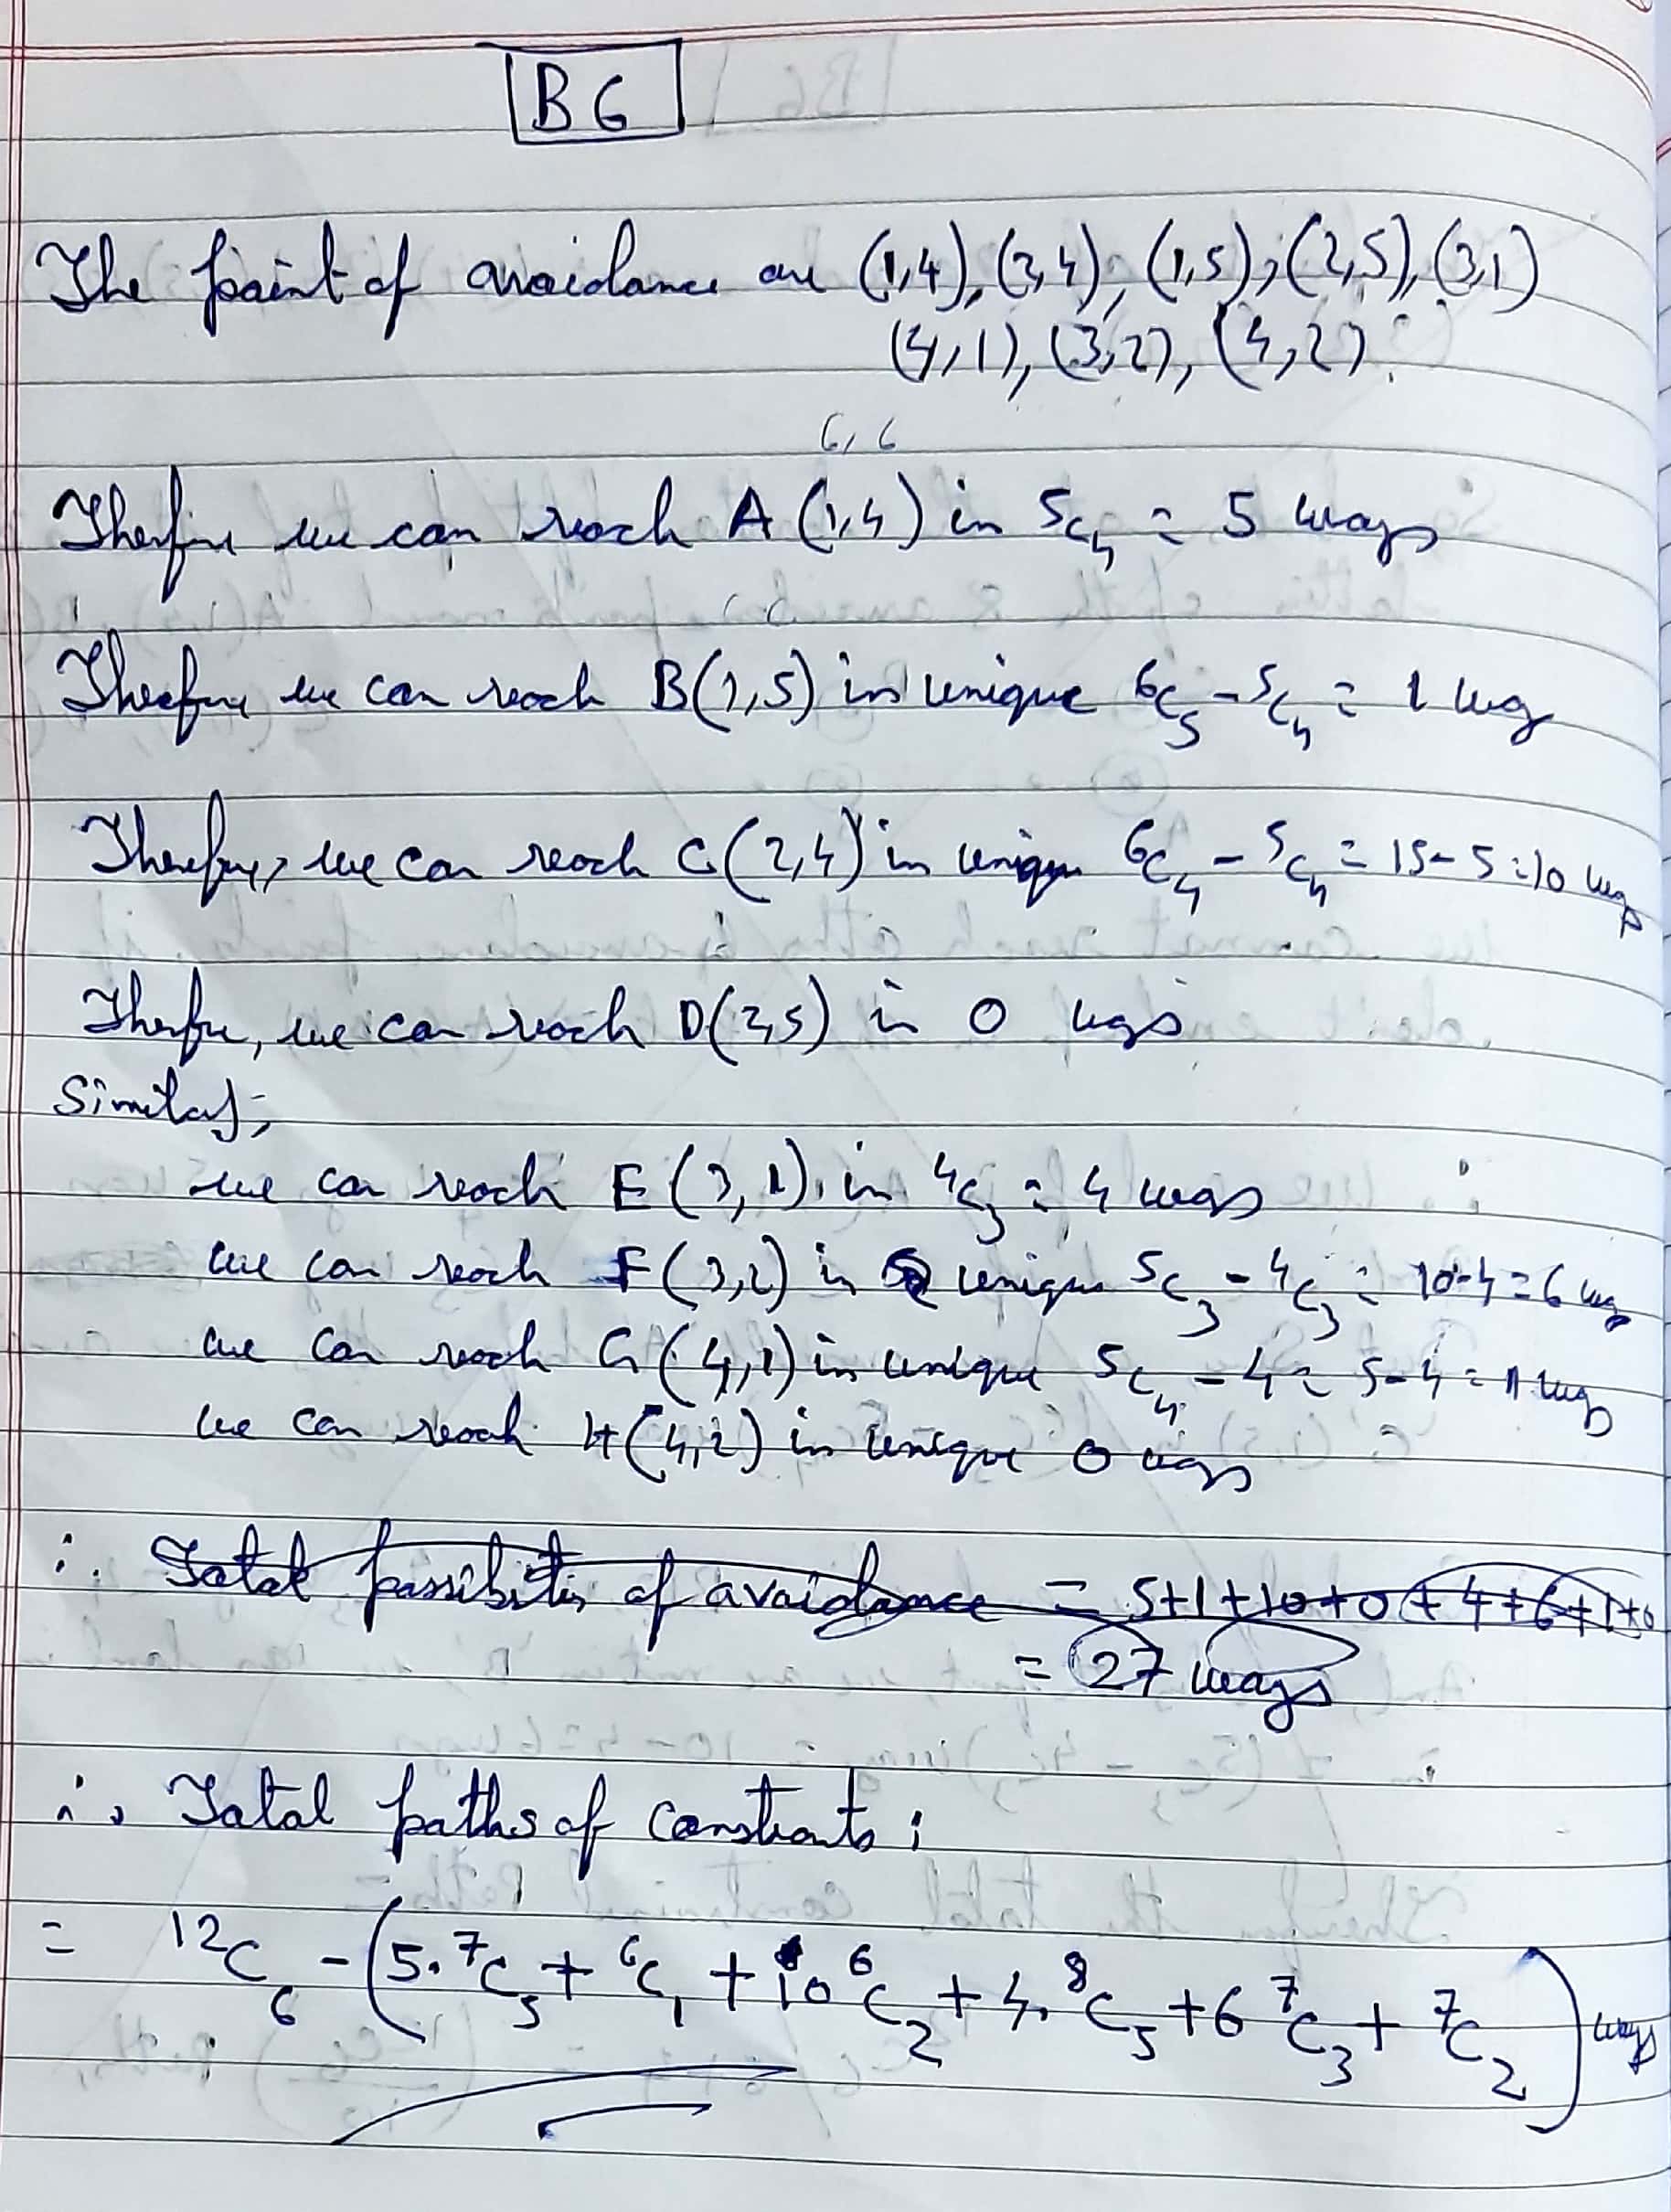 B6
The point of avoidance are (1,4), (2,4), (1,5), (2,5), (3,1)
(4,1), (3,2), (4,2).
6, 6
Therfore we can reach A (1,4) in 5C4 = 5 ways
Therefore we can reach B(1,5) in unique 6C5 - 5C4 = 1 way
Therefore, we can reach C(2,4) in unique 6C4 - 5C4 = 15 - 5 = 10 ways
Therfore, we can reach D(2,5) in 0 ways
Similarly,
we can reach E (3,1) in 4C3 = 4 ways
we can reach F (3,2) in unique 5C3 - 4C3 = 10-4 = 6 ways
we can reach G (4,1) in unique 5C4 - 4 = 5-4 = 1 way
we can reach H(4,2) in unique 0 ways
∴ Total possibilities of avoidance = 5+1+10+0+4+6+1+0
= 27 ways
∴ Total paths of constraints :
= 12C6 - (5. 7C5 + 6C1 + 10 6C2 + 4. 8C5 + 6 7C3 + 7C2) ways